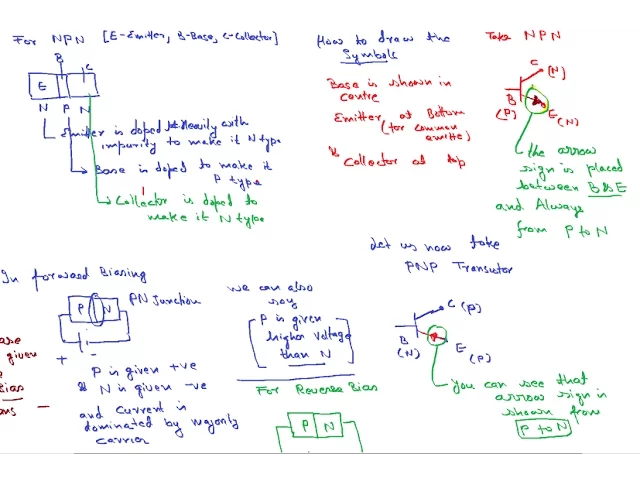 For NPN [E-Emitter, B-Base, C-Collector]
B
C
E
N P N
Emitter is doped Heavily with
impurity to make it N type
Base is doped to make it
P type
Collector is doped to
make it N type
How to draw the
Symbols
Base is shown in
centre
Emitter at Bottom
(for common
emitter)
Collector at top
Take NPN
C (N)
B
(P)
E (N)
the arrow
sign is placed
between B & E
and Always
from P to N
Let us now take
PNP Transistor
C (P)
B
(N)
E
(P)
You can see that
arrow sign is
shown from
P to N
In forward Biasing
P N
PN Junction
+ -
P is given +ve
N is given -ve
and current is
dominated by majority
carrier
we can also
say
P is given
higher voltage
than N
For Reverse Bias
P N
are
given
Bias
ons